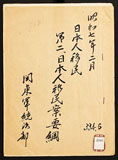 昭和七年二月
日本人移民
第二、日本人移民案要綱
関東軍統治部